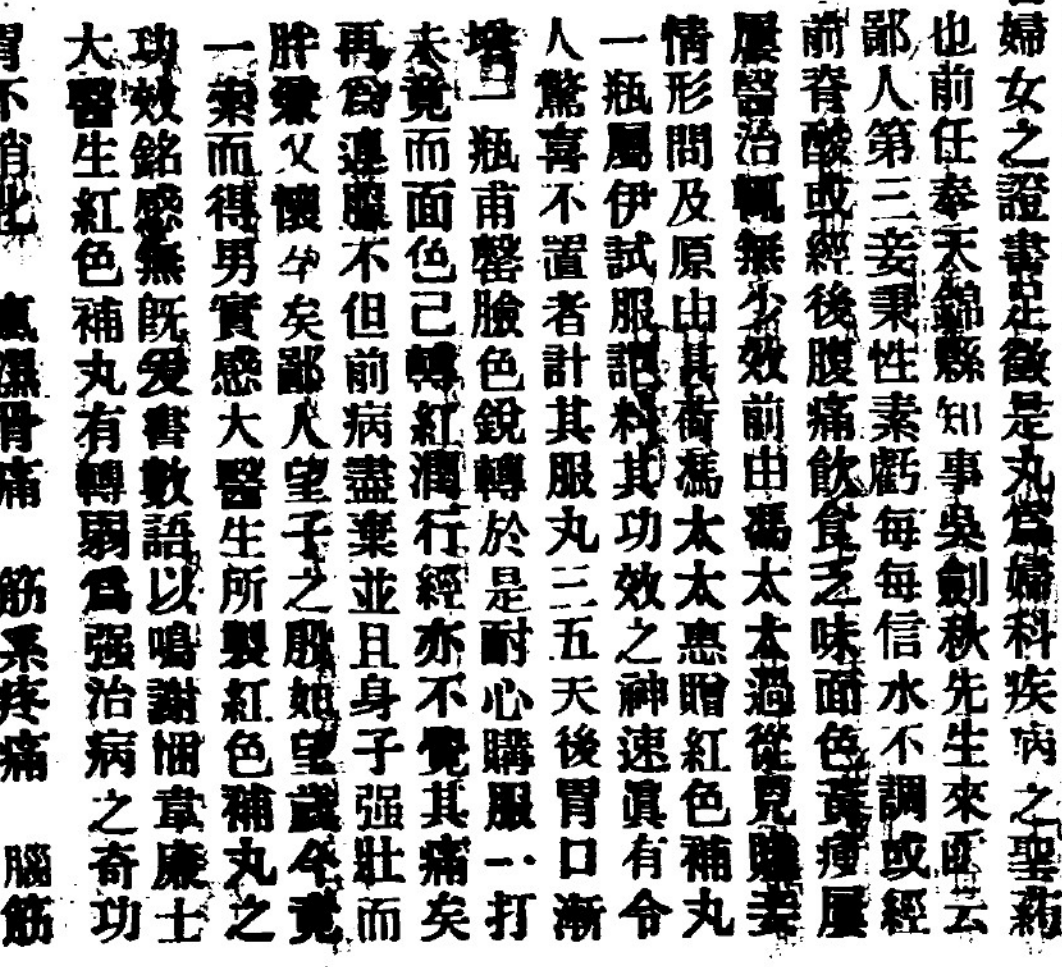 婦女之證書足徵是丸爲婦科疾病之聖藥
也前任奉天錦縣知事吳劍秋先生來函云
鄙人第三妾秉性素虧每每信水不調或經
前脊酸或經後腹痛飲食乏味面色黃瘦屢
屢醫治輒無少效前由馮太太過從見賤妾
情形問及原由其衛馮太太惠贈紅色補丸
一瓶屬伊試服詎料其功效之神速眞有令
人驚喜不置者計其服丸三五天後胃口漸
增一瓶甫罄臉色銳轉於是耐心購服一打
未竟而面色已轉紅潤行經亦不覺其痛矣
再爲連服不但前病盡棄並且身子强壯而
胖兼又懷孕矣鄙人望子之殷如望歲今竟
一索而得男實感大醫生所製紅色補丸之
功效銘感無旣爰書數語以鳴謝悃韋廉士
大醫生紅色補丸有轉弱爲强治病之奇功
胃不消化 風濕骨痛 筋系疼痛 腦筋